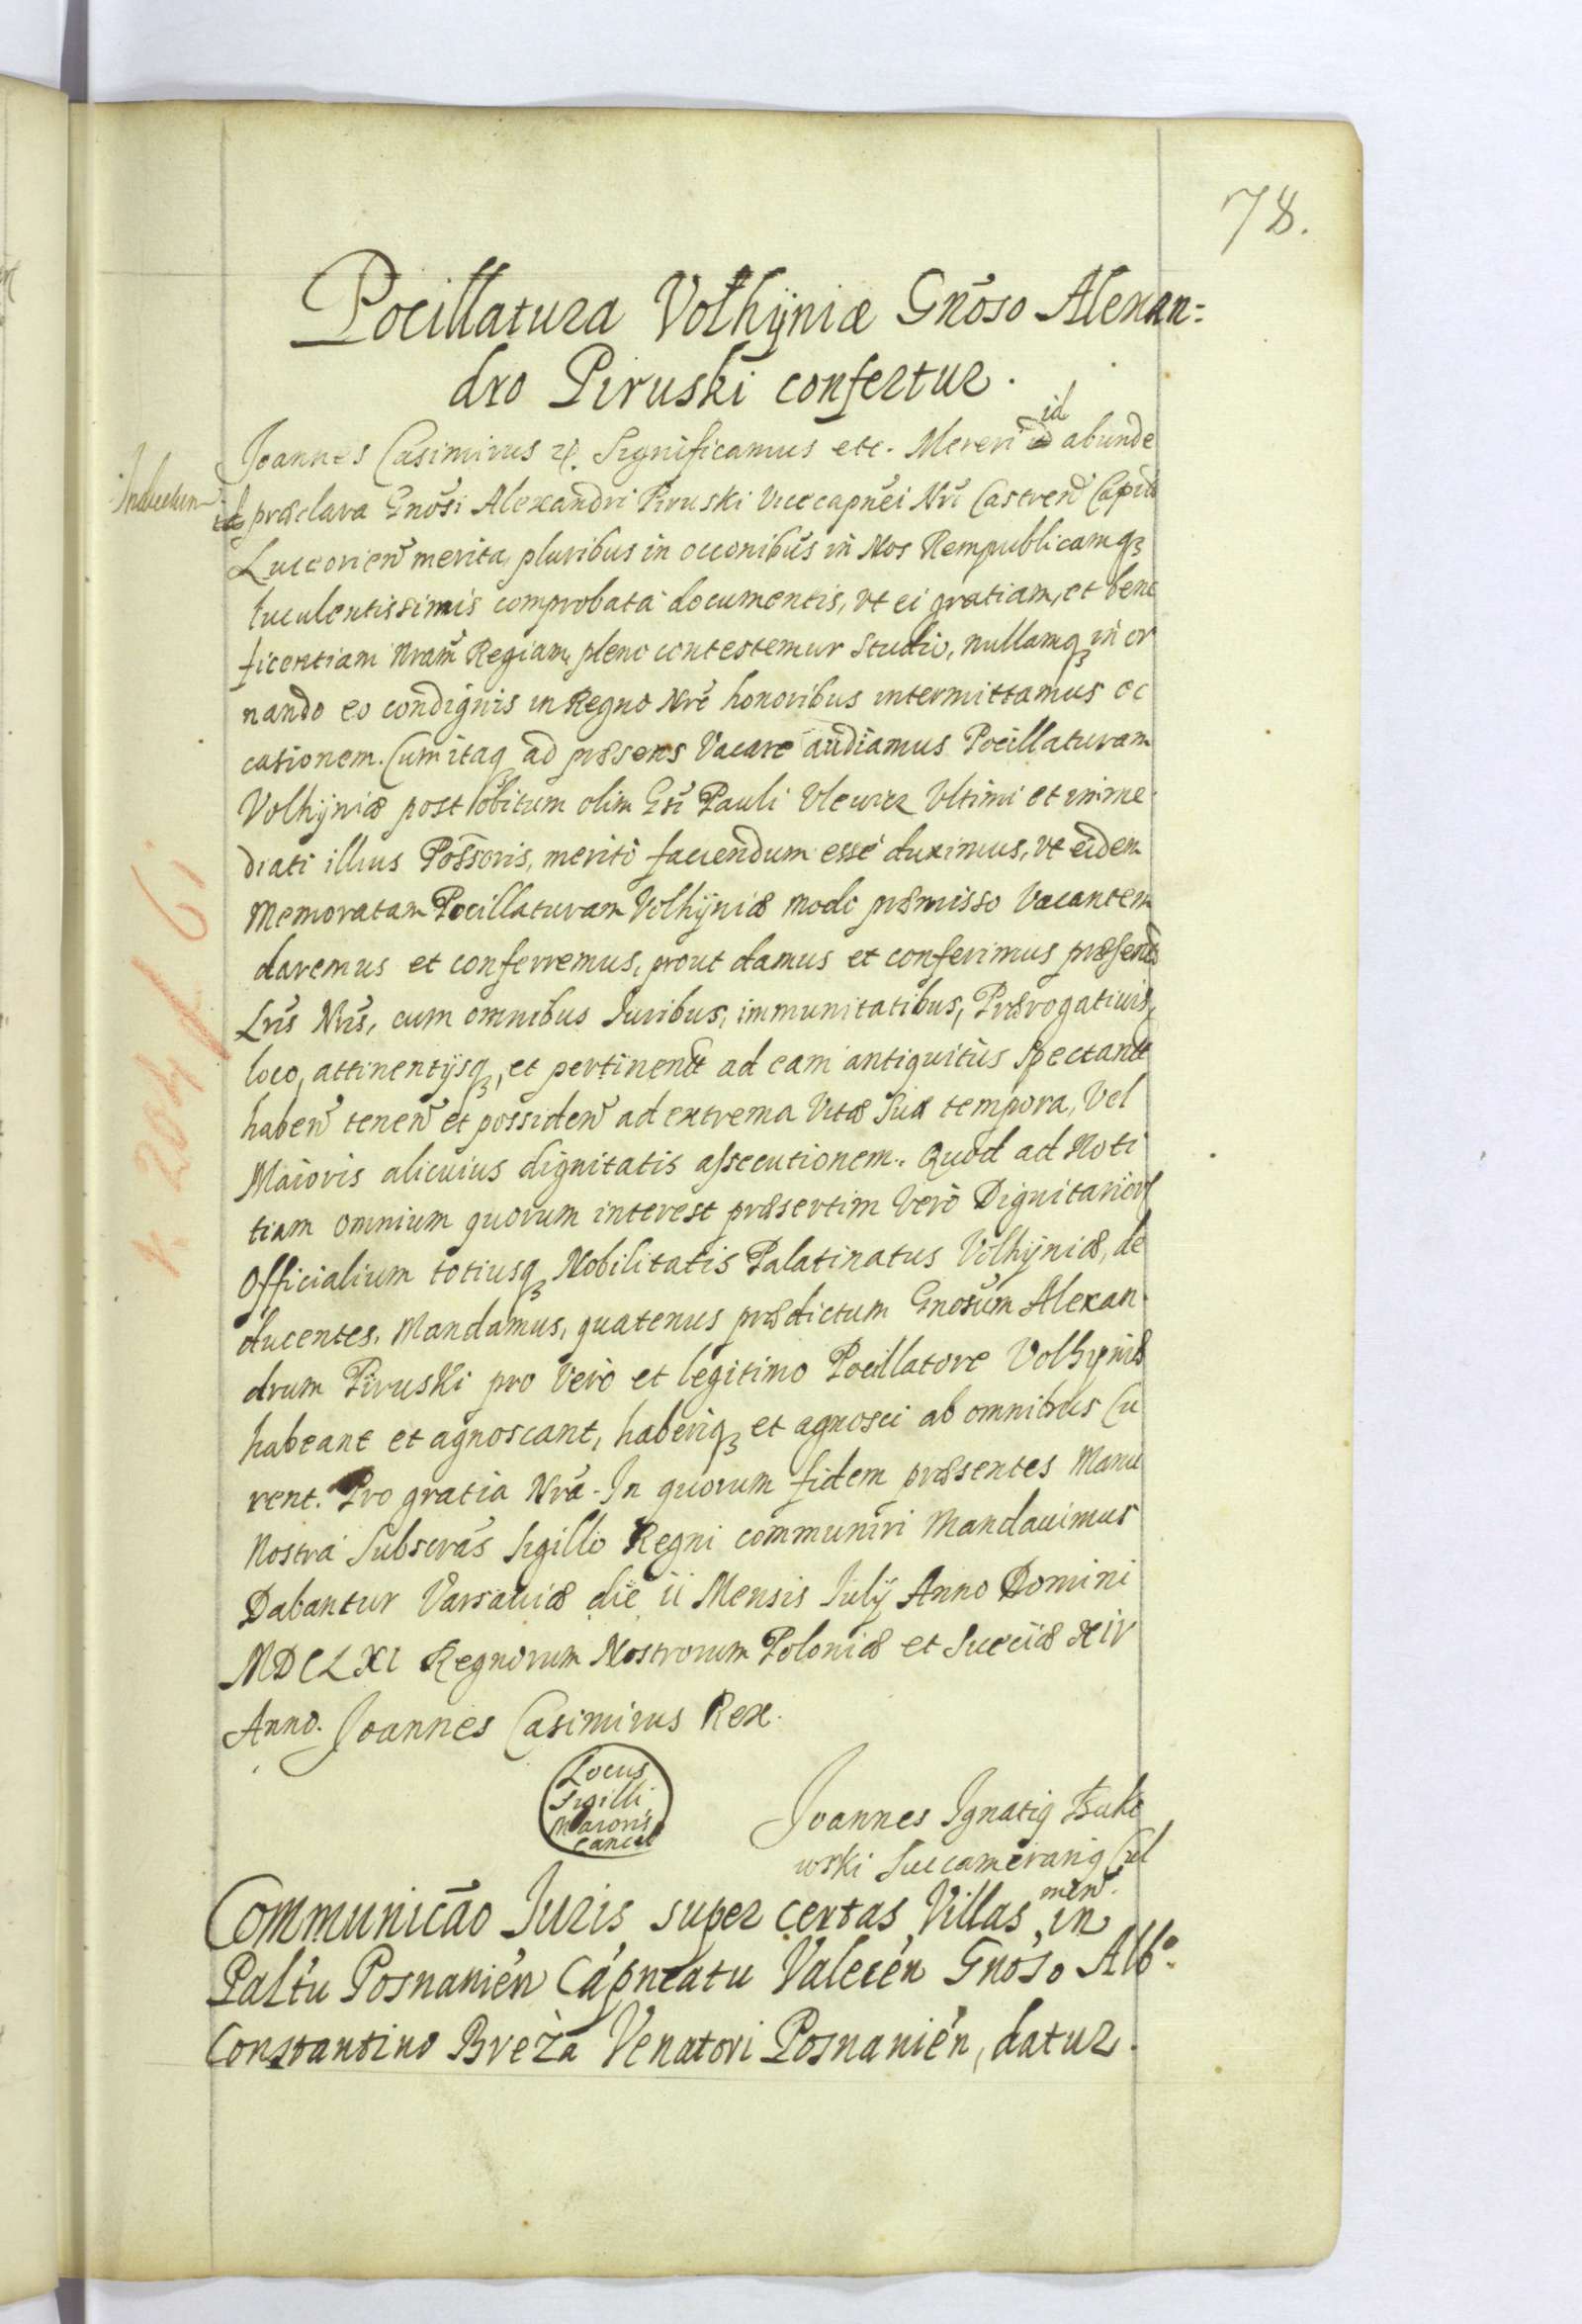 78.
Pocillatura Volhÿniæ Gnõso Alexan=
dro Piruski confertur.
Joannes Casimirus &. Significamus etc. Mereri id abunde
præclara Gnõsi Alexandri Piruski Vicecapnẽi Nrĩ Castren Capit
Luceorien merita, pluribus in occõnibus in Nos Rempublicamq3
luculentissimis comprobata documentis, vt ei gratiam, et bene
ficentiam Nram̃ Regiam, pleno contestemur studio, nullamq3 in or
nando eo condignis in Regno Nrõ honoribus intermittamus oc
casionem. Cum itaq3 ad præsens Vacare audiamus Pocillaturam
Volhÿniæ post obitum olim Gsĩ Pauli Ulewicz Ultimi et imme
diati illius Possõris, meritò faciendum esse duximus, vt eidem
Memoratam Pocillaturam Volhÿniæ modo præmisso Vacantem
daremus et conferremus, prout damus et conferimus præsent
Lrĩs Nrĩs, cum omnibus Iuribus, immunitatibus, Prærogatiuis,
loco, attinentÿsq3, et pertinentt ad eam antiquitùs spectantt
haben tenen et possiden ad extrema Vitæ Suæ tempora, Vel
Maioris alicuius dignitatis assecutionem. Quod ad Noti
tiam omnium quorum interest præsertim Verò Dignitarior
Officialium totiusq3 Nobilitatis Palatinatus Volhÿniæ, de
ducentes, Mandamus, quatenus prædictum Gnosũm Alexan
drum Piruski pro Vero et legitimo Pocillatore Volhyniæ
habeant et agnoscant, haberiq3 et agnosci ab omnibus Cu
rent. Pro gratia Nrã. In quorum fidem præsentes Manu
Nostra Subscrãs Sigillo Regni communiri Mandauimus
Dabantur Varsauiæ die ii Mensis Julÿ Anno Domini
MDCLXI Regnorum Nostrorum Poloniæ et Sueciæ XIV
Anno. Joannes Casimirus Rex.
Locus
Sigilli
Maioris
Cancel
Joannes Ignatiq Bąko
wski Succamerariq Cul
men.
Communicão Iuris super certas Villas in
Paltũ Posnanień Capneatu Valecen Gnõso Alb°.
Constantino Breza Venatori Posnanień, datur.